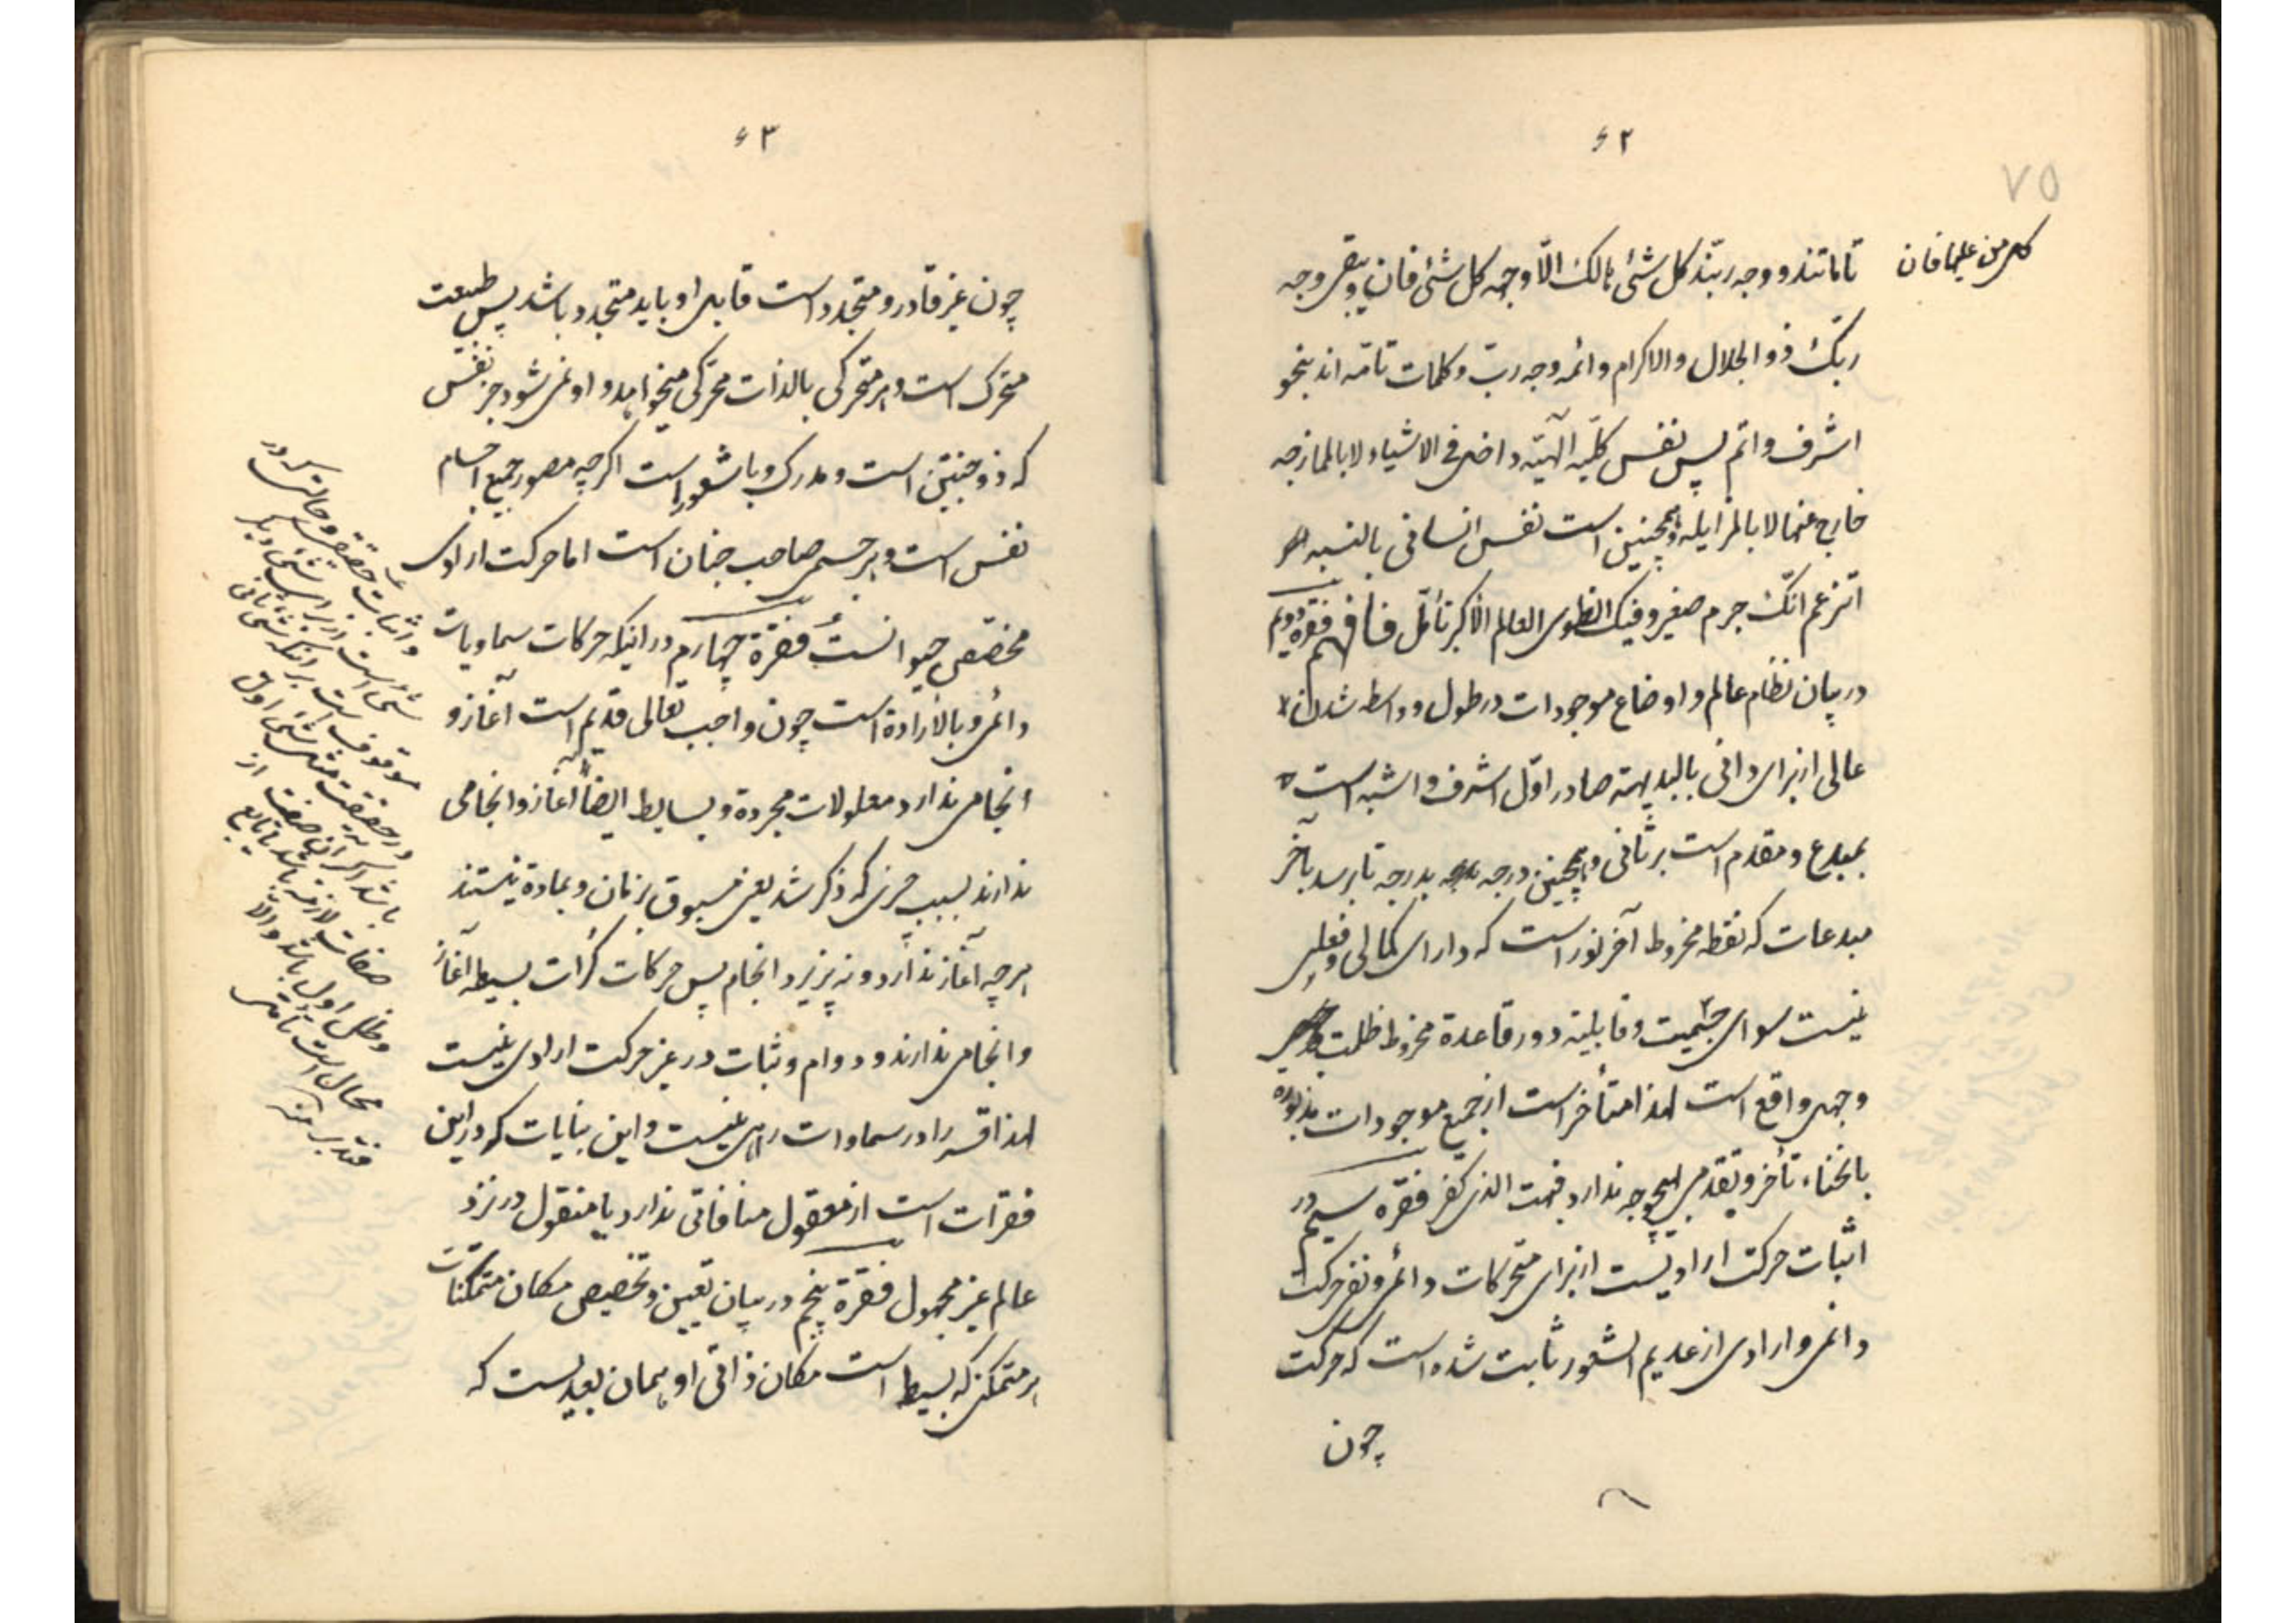 ۶۲
۷۵
تاماتند و وجه ربند کل شئی هالک الّا وجهه کل شئ فان و یبقی وجه
کل من علیها فان
ربّک ذو الجلال والاکرام وائمه وجه ربّ وکلمات تامّه اند بنحو
اشرف واتم پس نفس کلّیه الٓهیّه داخل فی الاشیاء لا بالممازجه
خارج عنها لا بالمزایله وهمچنین است نفس انسانی بالنسبه
اتزعم انّک جرم صغیر وفیک انطوی العالم الاکبر تأمّل فافهم فقره دویم
در بیان نظام عالم و اوضاع موجودات در طول و واسطه شدن
عالی از برای دانی بالبدیهة صادر اوّل اشرف و اشبه است
بمبدع و مقدم است بر ثانی وهمچنین درجه بدرجه تا برسد بآخر
مبدعات که نقطه مخروط آخر نور است که دارای کمالی و فعلی
نیست سوای جسمیت و قابلیة و در قاعدة مخروط ظلمت
و جهل واقع است لهذا متأخر است از جمیع موجودات مذکوره
باین نحو تأخر و تقدمی بهیچوجه ندارد فبهت الذی کفر فقره سیم در
اثبات حرکت ارادیست از برای متحرکات دائمی و نفی حرکت
دائمی و ارادی از عدیم الشعور ثابت شده است که حرکت
چون
۶۳
چون غیر قادر و متجدد است قابل او باید متجدد باشد پس طبیعت
متحرک است و هر متحرکی بالذات محرّکی میخواهد و او نمی شود جز نفس
که ذو جنبتین است و مدرک و با شعور است اگرچه مصور جمیع اجسام
نفس است و هر جسمی صاحب جنان است اما حرکت ارادی
مختص حیوانست فقرة چهارم در اینکه حرکات سماویات
دائمی و بالارادة است چون واجب تعالی قدیم است آغاز و
انجامی ندارد معلولات مجردة و بسایط ایضاً آغاز و انجامی
ندارند بسبب که ذکر شد یعنی مسبوق بزمان و بمادة نیستند
هر چه آغاز ندارد و نه پزیرد انجام پس حرکات کرات بسیطه آغاز
و انجامی ندارند و دوام و ثبات در غیر حرکت ارادی نیست
لهذا قسر را در سماوات راهی نیست و این بیانات که در این
فقرات است از معقول منافاتی ندارد با منقول در نزد
عالم غیر مجهول فقرة پنجم در بیان تعیین و تخصیص مکان متمکنات
هر متمکنی که بسیط است مکان ذاتی او همان بعدیست که
و اثبات حقیقی و حالتی که در
شئی است از برای شئی دیگر
موقوف است بر آنکه شئی ثانی
در حقیقت مثل شئی اول
باشد اگر آن صفت از
صفات لازمه باشد یا تابع
و ظل اول باشد و الّا
محال است تأمّل
فتدبر